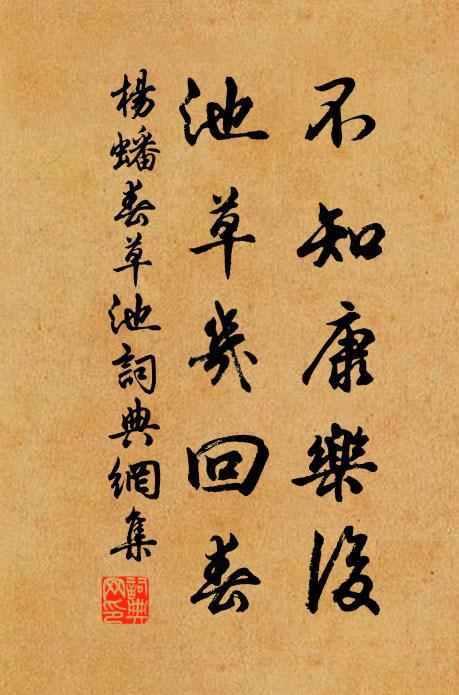 不知康樂後
池草幾回春
楊蟠春草池詞典網集
詞典
网印